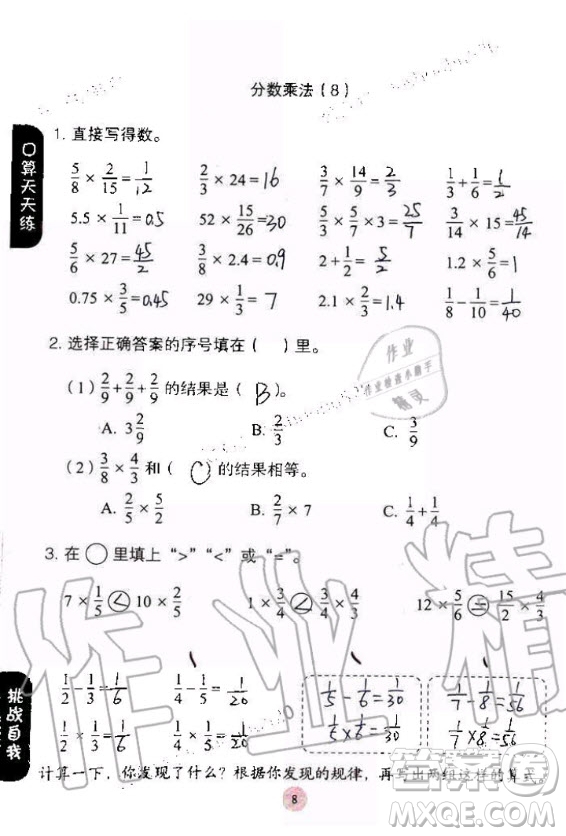 分数乘法（8）
口算天天练
1. 直接写得数。
5/8 × 2/15 = 1/12  2/3 × 24 = 16  3/7 × 14/9 = 2/3  1/3 + 1/6 = 1/2
5.5 × 1/11 = 0.5  52 × 15/26 = 30  5/3 × 5/7 × 3 = 25/7  3/14 × 15 = 45/14
5/6 × 27 = 45/2  3/8 × 2.4 = 0.9  2 + 1/2 = 5/2  1.2 × 5/6 = 1
0.75 × 3/5 = 0.45  29 × 1/3 = 7  2.1 × 2/3 = 1.4  1/8 × 1/5 = 1/40
2. 选择正确答案的序号填在（ ）里。
（1）2/9 + 2/9 + 2/9 的结果是（ B ）。
A. 3 2/9  B. 2/3  C. 3/9
（2）3/8 × 4/3 和（ C ）的结果相等。
A. 2/5 × 5/2  B. 2/7 × 7  C. 1/4 + 1/4
3. 在○里填上“>”“<”或“=”。
7 × 1/5 < 10 × 2/5  1 × 3/4 < 4/3 × 3/4  12 × 5/6 = 15/2 × 4/3
挑战自我
1/2 − 1/3 = 1/6  1/4 − 1/5 = 1/20  1/5 − 1/6 = 1/30  1/7 − 1/8 = 1/56
1/2 × 1/3 = 1/6  1/4 × 1/5 = 1/20  1/5 × 1/6 = 1/30  1/7 × 1/8 = 1/56
计算一下，你发现了什么？根据你发现的规律，再写出两组这样的算式。
8
作业
作业检查小助手
精灵
作业精
MXQE.COM